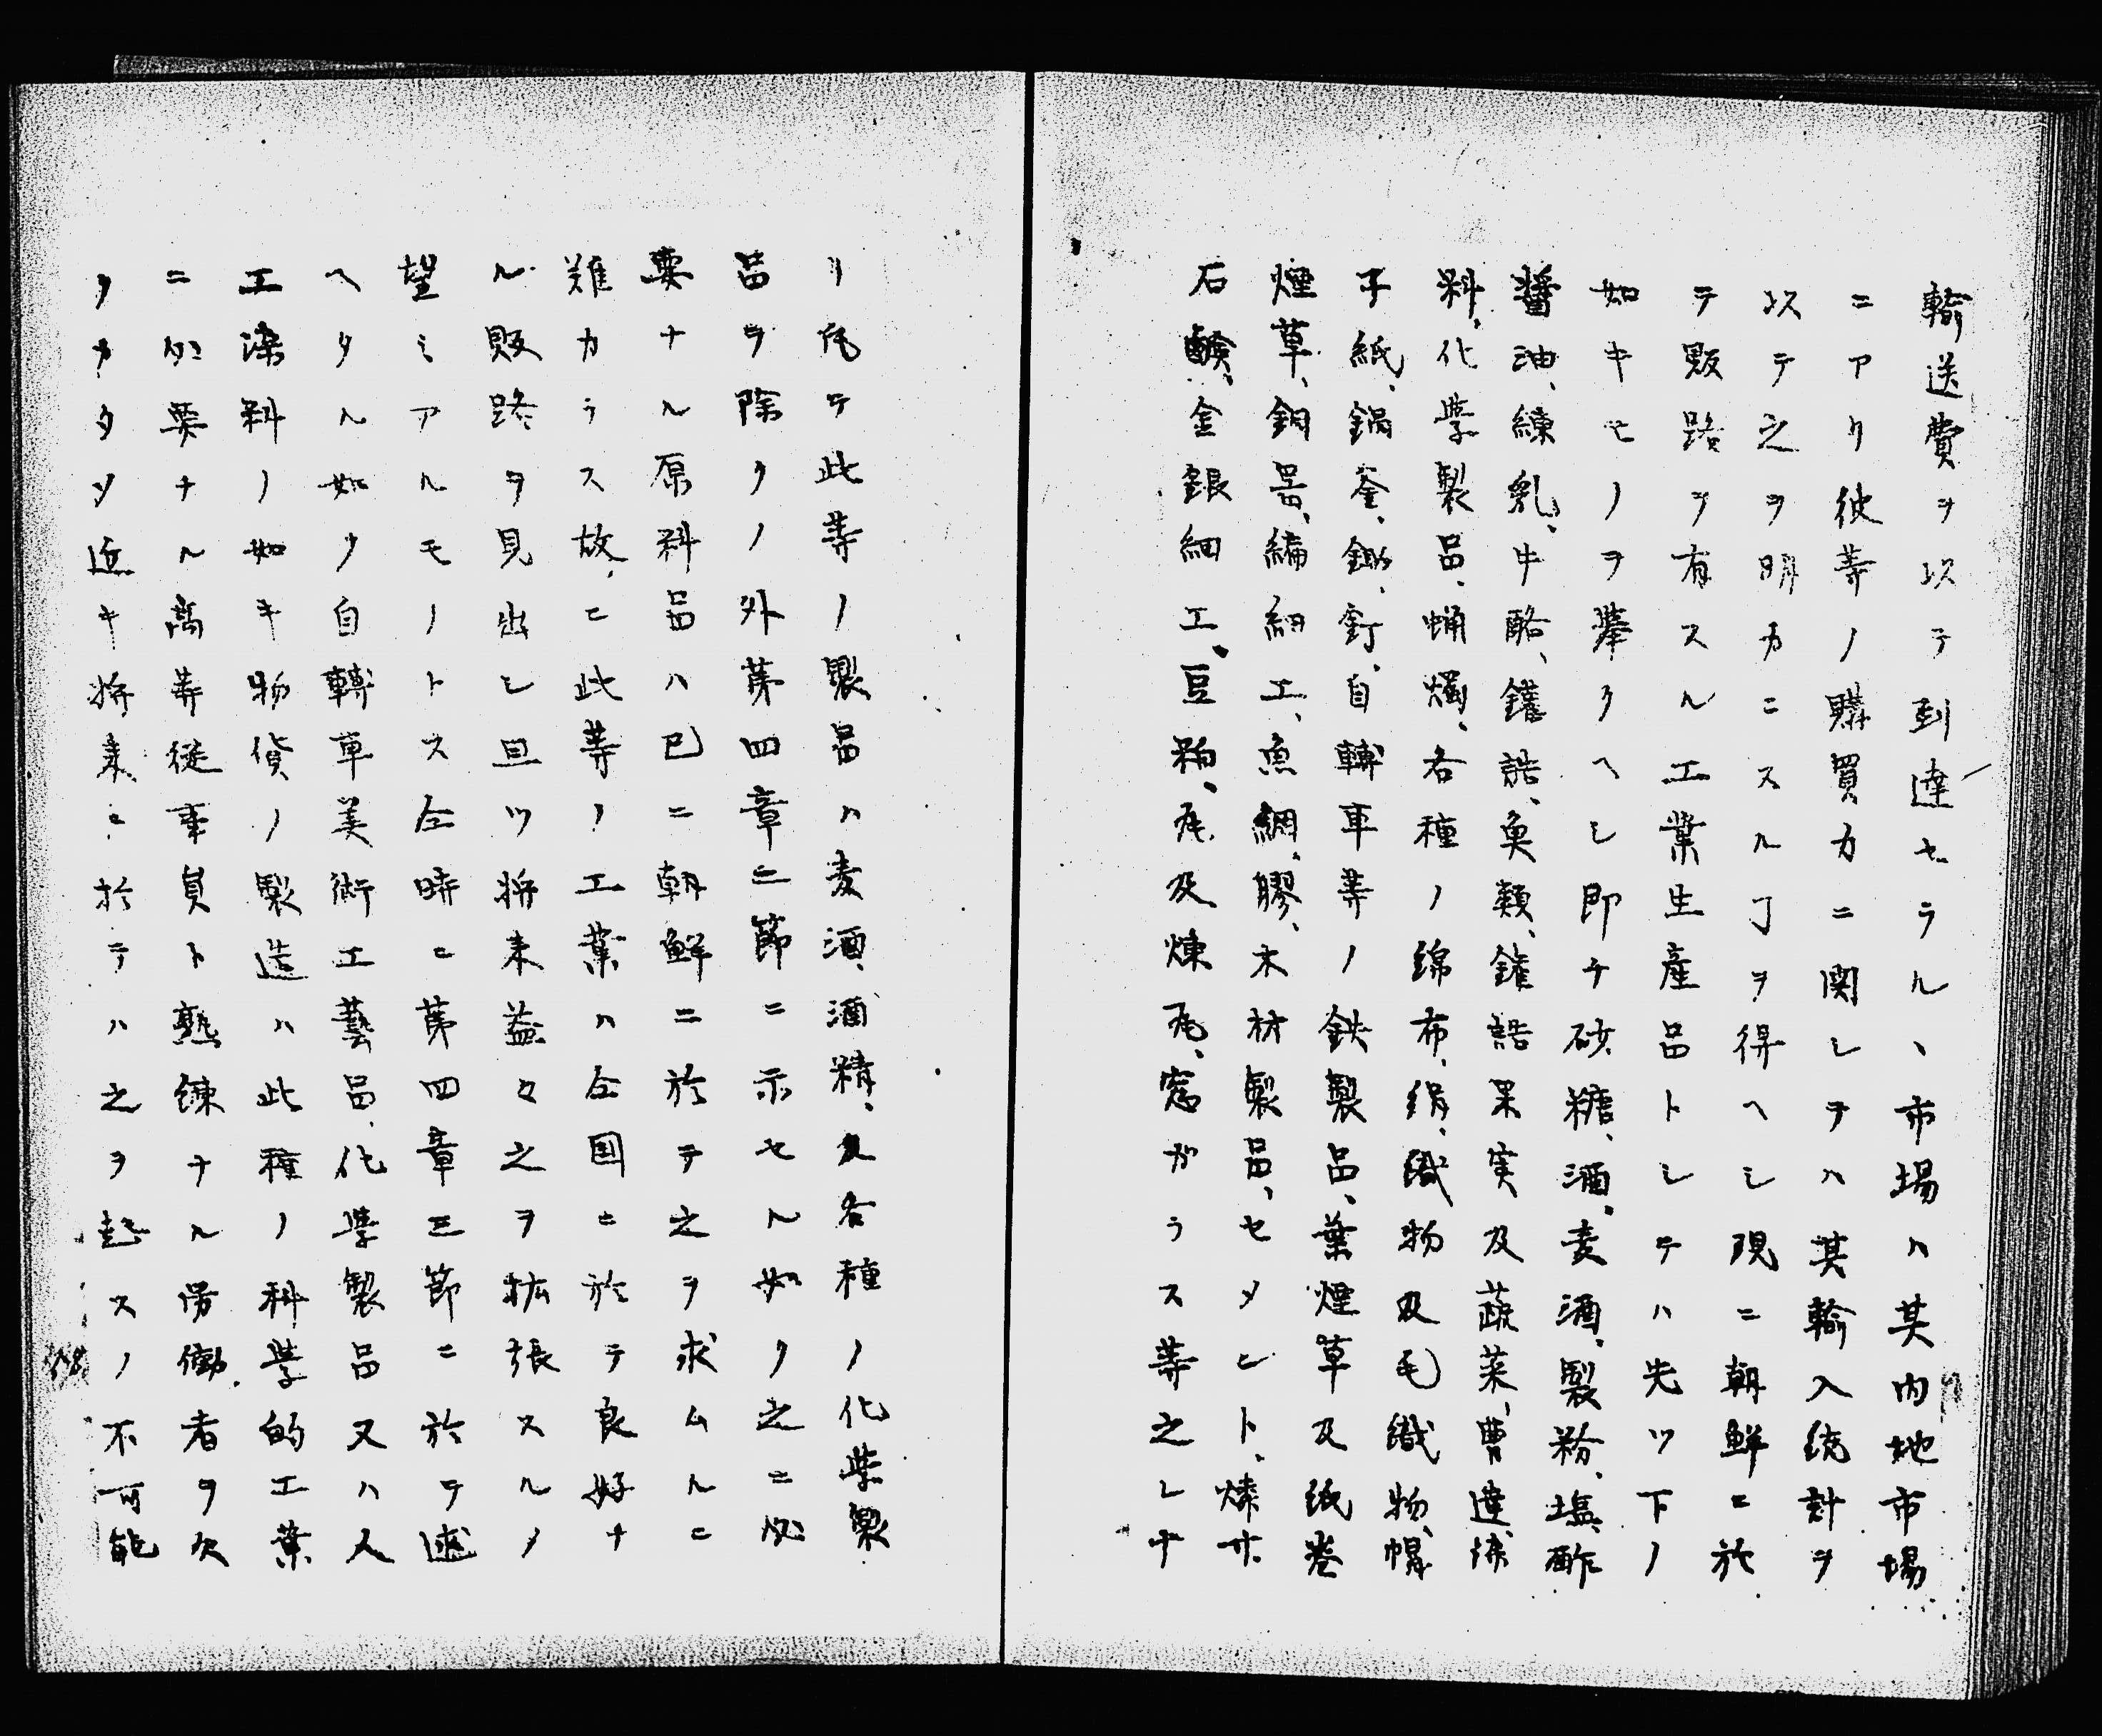 輸送費ヲ以テ到達セラルヽ市場ハ其内地市場
ニアリ彼等ノ購買力ニ関シテハ其輸入統計ヲ
以テ之ヲ明カニスルヿヲ得ヘシ現ニ朝鮮ニ於
テ販路ヲ有スル工業生産品トシテハ先ツ下ノ
如キモノヲ挙クヘシ即チ砂糖、酒、麦酒、製粉、塩、酢
醤油、練乳、牛酪、鑵詰、魚類、鑵詰果実及蔬菜、曹達、染
料、化学製品、蝋燭、各種ノ綿布、絹、織物及毛織物、帽
子紙、鍋釜、鋤、釘、自轉車等ノ鉄製品、葉煙草及紙巻
煙草、銅器、編細工、魚網、膠、木材製品、セメント、煉瓦
石鹸、金銀細工、豆粕、瓦及煉瓦、窓ガラス等之レナ
リ尤テ此等ノ製品ハ麦酒、酒精、及各種ノ化学製
品ヲ除クノ外第四章三節ニ示セル如ク之ニ必
要ナル原料品ハ已ニ朝鮮ニ於テ之ヲ求ムルニ
難カラス故ニ此等ノ工業ハ仝国ニ於テ良好ナ
ル販路ヲ見出シ且ツ将来益々之ヲ拡張スルノ
望ミアルモノトス仝時ニ第四章三節ニ於テ述
ヘタル如ク自轉車美術工藝品、化学製品又ハ人
工染料ノ如キ物貨ノ製造ハ此種ノ科学的工業
ニ必要ナル高等従事員ト熟練ナル労働者ヲ欠
クカタメ近キ将来ニ於テハ之ヲ起スノ不可能